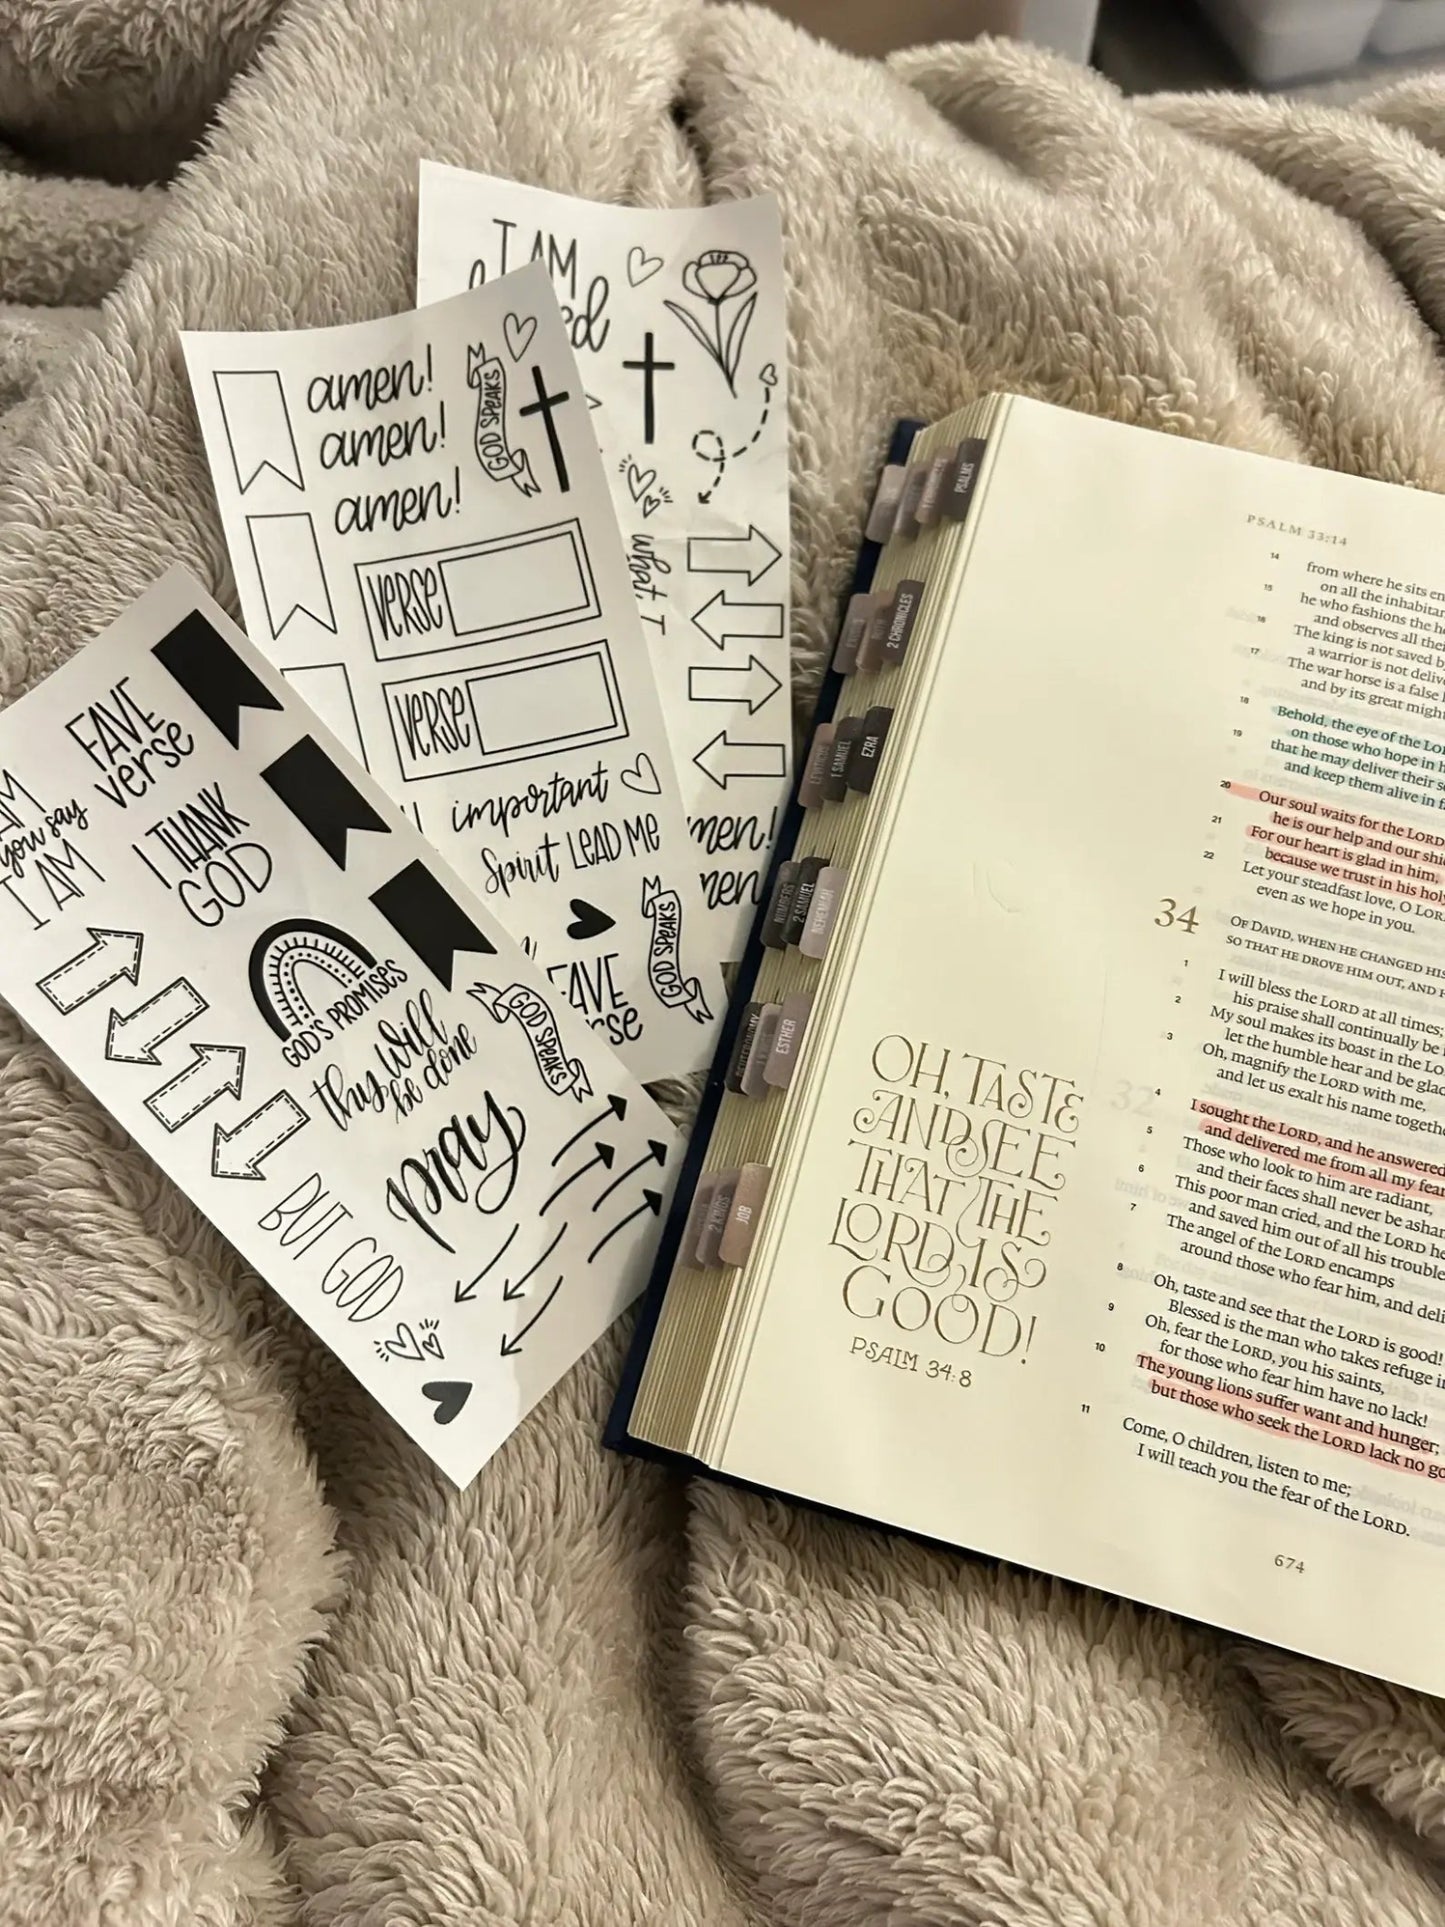 I AM
amen!
amen!
amen!
GOD SPEAKS
VERSE
VERSE
what, I
important
Spirit LEAD ME
men!
men
GOD SPEAKS
FAVE
verse
FAVE
verse
you say
I AM
I THANK
GOD
GOD'S PROMISES
thy will
be done
GOD SPEAKS
pray
BUT GOD
PSALMS
2 CHRONICLES
LEVITICUS
1 SAMUEL
EZRA
NUMBERS
2 SAMUEL
NEHEMIAH
DEUTERONOMY
ESTHER
2 KINGS
JOB
PSALM 33:14
14 from where he sits en
15 on all the inhabitan
he who fashions the he
16 and observes all the
The king is not saved b
17 a warrior is not deliv
The war horse is a false
and by its great might
18 Behold, the eye of the LO
19 on those who hope in h
that he may deliver their s
and keep them alive in f
20 Our soul waits for the LORD
21 he is our help and our shi
For our heart is glad in him,
22 because we trust in his holy
Let your steadfast love, O LOR
even as we hope in you.
34 OF DAVID, WHEN HE CHANGED HIS
SO THAT HE DROVE HIM OUT, AND H
1 I will bless the LORD at all times;
2 his praise shall continually be
My soul makes its boast in the LO
3 let the humble hear and be glad
Oh, magnify the LORD with me,
and let us exalt his name togeth
4 I sought the LORD, and he answered
5 and delivered me from all my fear
Those who look to him are radiant,
6 and their faces shall never be asham
This poor man cried, and the LORD he
7 and saved him out of all his trouble
The angel of the LORD encamps
8 around those who fear him, and deli
Oh, taste and see that the LORD is good!
9 Blessed is the man who takes refuge i
Oh, fear the LORD, you his saints,
10 for those who fear him have no lack!
The young lions suffer want and hunger;
11 but those who seek the LORD lack no go
Come, O children, listen to me;
I will teach you the fear of the LORD.
OH, TASTE
AND SEE
THAT THE
LORD IS
GOOD!
PSALM 34:8
674